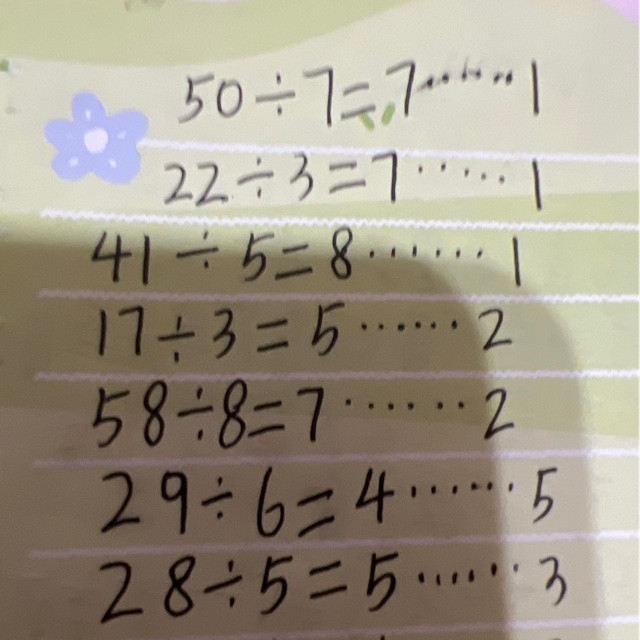 50÷7=7······1
22÷3=7······1
41÷5=8······1
17÷3=5······2
58÷8=7······2
29÷6=4······5
28÷5=5······3